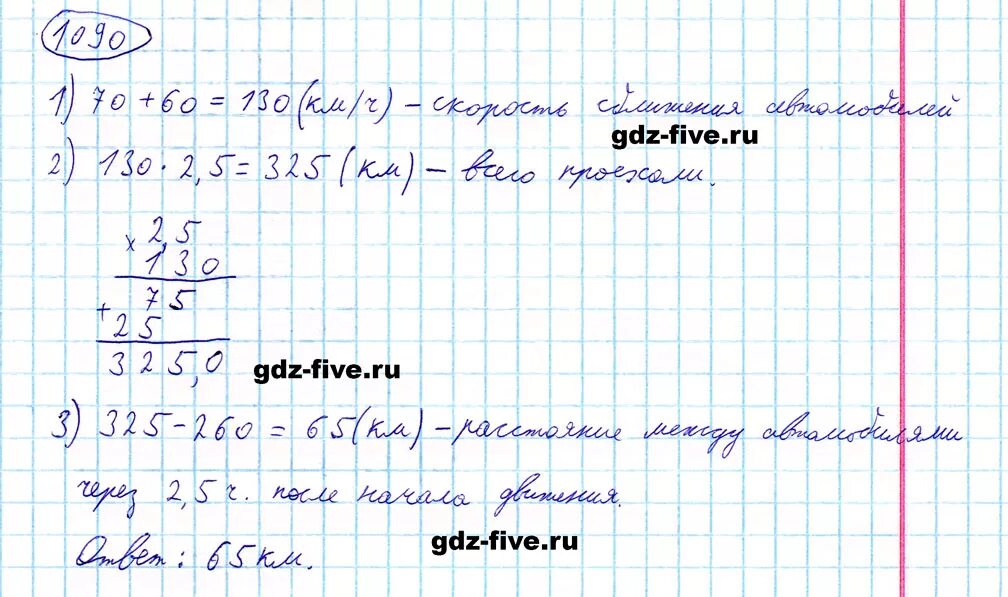 1090
1) 70 + 60 = 130 (км/ч) – скорость сближения автомобилей
gdz-five.ru
2) 130 · 2,5 = 325 (км) – всего проехали.
× 2,5
130
+ 75
25
325,0
gdz-five.ru
3) 325 – 260 = 65 (км) – расстояние между автомобилями
через 2,5 ч. после начала движения.
gdz-five.ru
Ответ: 65 км.